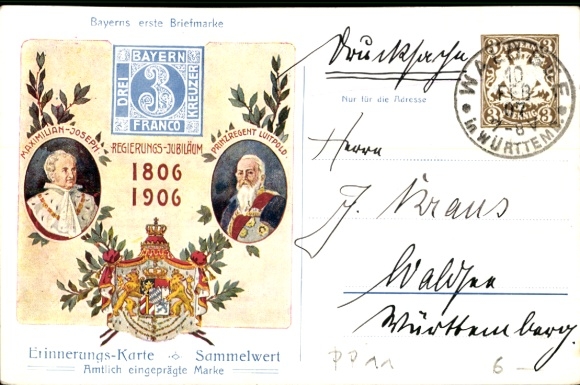 Bayerns erste Briefmarke
BAYERN
DREI
3
KREUZER
FRANCO
MAXIMILIAN-JOSEPH
REGIERUNGS-JUBILÄUM
PRINZREGENT LUITPOLD
1806
1906
Erinnerungs-Karte Sammelwert
Amtlich eingeprägte Marke
Drucksache
Nur für die Adresse
3 3
in WÜRTTEM.
Herrn
J. Kraus
Waldsee
Württemberg.
PP 11
6 –